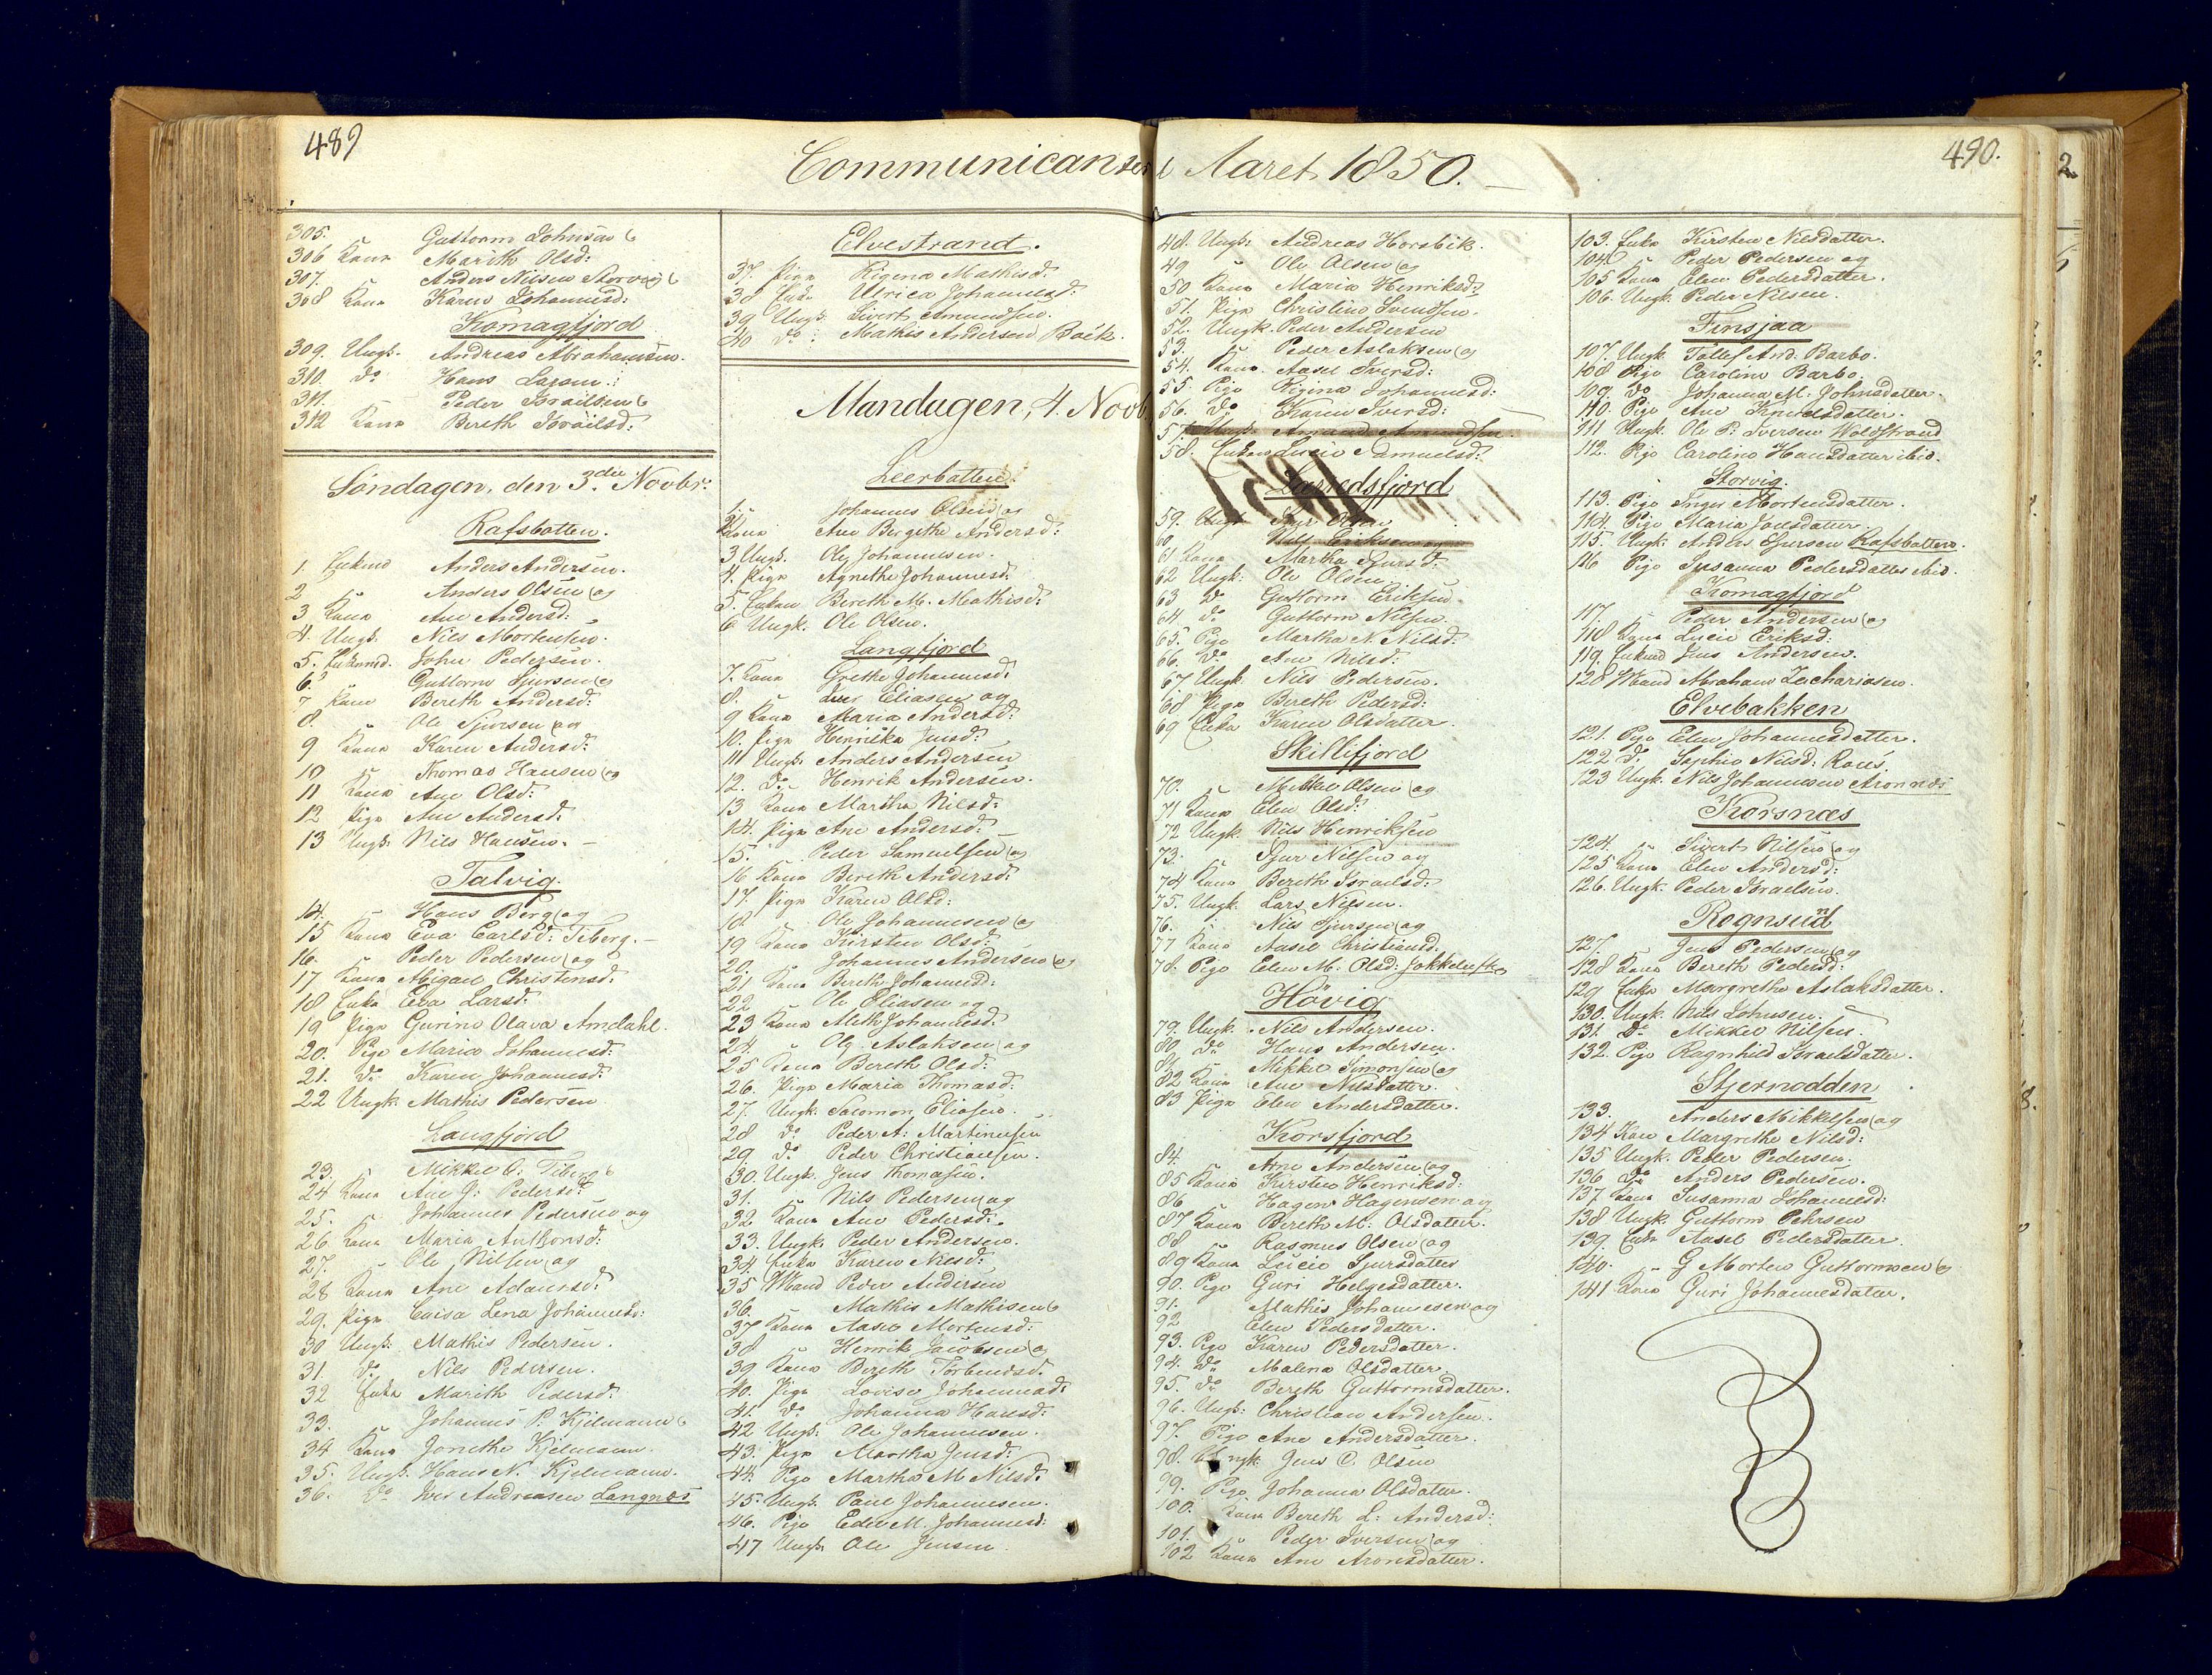 489
Communicanter i Aaret 1850.
490.
2
305. Guttorm Johnsen (
306 Kona Marith Olsd:
307. Anders Nilsen Storvig (
308 Kona Karen Johannesd:
Komagfjord
309. Ungk. Andreas Abrahamsen.
310. do Hans Larsen.
311. Peder Israilsen (
312 Kona Bereth Israilsd:
Søndagen, den 3die Novbr.
Rafsbotten.
1. Enkmd Anders Andersen.
2 Anders Olsen (og
3 Kona Ane Andersd:
4. Ungk. Nils Mortensen.
5. Enkemd. John Pedersen.
6. Guttorm Sjursen (og
7 Kona Bereth Andersd:
8. Ole Sjursen (og
9 Kona Karen Andersd:
10 Thomas Hansen (og
11 Kona Ane Olsd:
12 Pige Ane Andersd:
13 Ungk. Nils Hansen.
Talvig.
14. Hans Berg (og
15 Kona Eva Carlsd: Tiberg.
16. Peder Pedersen (og
17 Kona Abigael Christensd:
18 Enke Eva Larsd:
19 Pige Gurine Olava Amdahl.
20. Pige Maria Johannesd:
21. do Karen Johannesd:
22 Ungk. Mathis Pedersen
Langfjord
23. Mikkel O: Tiberg (
24 Kona Ane J: Pedersd:
25. Johannes Pedersen og
26 Kona Maria Anthonsd:
27. Ole Nilsen (og
28 Kona Ane Adamsd:
29. Pige Caisa Lena Johannesd:
30 Ungk: Mathis Pedersen.
31. do Nils Pedersen.
32 Enke Marith Pedersd:
33. Johannes P: Kjelmann (
34 Kona Janethe Kjelmann.
35. Ungk. Hans N. Kjelmann.
36. do Iver Andreasen Langnæs
Elvestrand.
37. Pige Regina Mathisd:
38 Enke Ulrica Johannesd:
39 Ungk. Sivert Amundsen.
40 do: Mathis Andersen Bæck.
Mandagen, 4. Novb.
Leerbotten.
1. Johannes Olsen (og
2 Kona Ane Bergithe Andersd:
3 Ungk. Ole Johannesen.
4. Pige Agnethe Johannesd:
5. Enken Bereth M. Mathisd:
6 Ungk. Ole Olsen.
Langfjord
7. Kona Grethe Johannesd:
8. Iver Eliasen og
9 Kona Maria Andersd:
10. Pige Henrikka Jensd:
11 Ungk. Anders Andersen
12. do Henrik Andersen.
13 Kona Martha Nilsd:
14. Pige Ane Andersd:
15. Peder Samuelsen (og
16 Kona Bereth Andersd:
17. Pige Karen Olsd:
18. Ole Johannesen (og
19 Kona Kirsten Olsd:
20. Johannes Andersen (og
21 Kona Bereth Johannesd:
22 Ole Eliasen og
23 Kona Aleth Johannesd:
24. Ole Aslaksen (og
25 Kona Bereth Olsd:
26. Pige Maria Thomasd:
27. Ungk. Salomon Eliasen.
28 do Peder A: Martinusen
29. do Peder Christiansen.
30. Ungk. Jens Thomasen.
31. Nils Pedersen (og
32 Kona Ane Pedersd:
33. Ungk. Peder Andersen.
34. Enke Karen Nilsd:
35 Mand Peder Andersen
36. Mathis Mathisen (
37 Kona Aasel Mortensd:
38 Henrik Jacobsen (og
39 Kona Bereth Torbensd.
40. Pige Lovise Johannesd:
41. do Johanna Hansd:
42 Ungk. Ole Johannesen.
43. Pige Martha Jensd:
44. Pige Martha M. Nilsd:
45. Ungk. Paul Johannesen.
46. Pige Eden M. Johannesd:
47 Ungk. Ole Jensen
48. Ungk. Andreas Horsbek.
49 Ole Olsen (og
50 Kona Maria Henriksd:
51. Pige Christine Svendsen.
52. Ungk. Peder Andersen
53. Peder Aslaksen (og
54. Kona Aasel Iversd:
55. Pige Regina Johannesd:
56. do Karen Iversd:
57. Ungk. Amund Amundsen.
58. Enken Lucie Samuelsd:
Larredsfjord
59. Ungk Sjur Olsen
60. Nils Eriksen og
61 Kona Martha Sjursd:
62 Ungk: Ole Olsen
63 do Guttorm Eriksen
64. do Guttorm Nilsen.
65. Pige Martha N. Nilsd:
66. do Ane Nilsd:
67 Ungk. Nils Pedersen.
68 Pige Bereth Pedersd:
69 Enke Karen Olsdatter.
Skillefjord
70. Mikkel Olsen (og
71 Kona Elen Olsd:
72 Ungk. Nils Henriksen
73. Sjur Nilsen og
74 Kona Bereth Israelsd:
75. Ungk. Lars Nilsen.
76. Nils Sjursen (og
77 Kona Aasel Christiansd.
78. Pige Elen M. Olsd: Jokkeluft
Hövig
79. Ungk. Nils Andersen.
80 do Hans Andersen.
81 Mikkel Simonsen (og
82 Kona Ane Nilsdatter.
83 Pige Elen Andersdatter.
Korsfjord
84. Arne Andersen (og
85 Kona Kirsten Henriksd:
86 Hagen Hagensen og
87 Kona Bereth M: Olsdatter.
88 Rasmus Olsen (og
89 Kona Lucie Sjursdatter
90. Pige Guri Helgesdatter.
91. Mathis Johannesen og
92 Elen Pedersdatter.
93. Pige Karen Pedersdatter.
94. do Malena Olsdatter
95. do Bereth Guttormsdatter.
96. Ungk. Christian Andersen.
97. Pige Ane Andersdatter.
98. Ungk. Jens C. Olsen
99. Pige Johanna Olsdatter.
100. Kona Bereth L: Andersd:
101. Peder Iversen (og
102 Kona Ane Aronsdatter.
103. Enke Kirsten Nilsdatter.
104 Peder Pedersen og
105 Kona Elen Pedersdatter.
106. Ungk. Peder Nilsen.
Finsjaa
107. Ungk. Tollef And. Barbo.
108 Pige Caroline Barbo.
109. do Johanna M. Johnsdatter.
110. Pige Ane Knudsdatter.
111 Ungk. Ole P: Iversen Woldstrand
112. Pige Caroline Hansdatter ibid.
Storvig.
113. Pige Inger Mortensdatter.
114. Pige Maria Joelsdatter.
115. Ungk: Anders Sjursen Rafsbotten.
116 Pige Susanna Pedersdatter ibid.
Komagfjord
117. Peder Andersen (og
118 Kona Lucie Eriksd:
119. Enkmd Jens Andersen.
120 Mand Abraham Zachariasen.
Elvebakken
121. Pige Elen Johannesdatter.
122 do Sophie Nilsd: Raes
123 Ungk. Nils Johannesen Aronnæs
Korsnæs
124. Sivert Nilsen (og
125 Kona Elen Andersd:
126. Ungk. Peder Israelsen.
Rognsund
127. Jens Pedersen (og
128 Kona Bereth Pedersd:
129 Enke Margrethe Aslaksdatter.
130. Ungk. Nils Johnsen.
131. do Mikkel Nilsen.
132. Pige Ragnhild Israelsdatter.
Stjernodden
133. Anders Mikkelsen (og
134 Kone Margrethe Nilsd:
135 Ungk. Peder Pedersen.
136 do Anders Pedersen.
137 Kona Susanna Johannesd:
138 Ungk. Guttorm Pehrsen
139. Enke Aasel Pedersdatter.
140. G Morten Guttormsen (og
141 Kona Guri Johannesdatter.